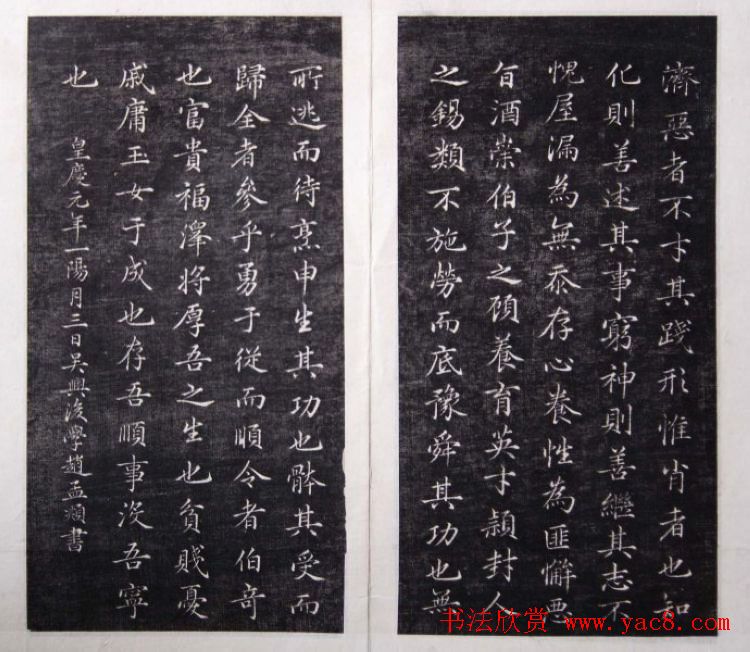 濟惡者不才其踐形惟肖者也知
化則善述其事窮神則善繼其志不
愧屋漏為無忝存心養性為匪懈惡
旨酒崇伯子之顧養育英才穎封人
之錫類不施勞而底豫舜其功也無
所逃而待烹申生其功也骵其受而
歸全者參乎勇于從而順令者伯奇
也富貴福澤將厚吾之生也貧賤憂
戚庸玉女于成也存吾順事沒吾寧
也
皇慶元年一陽月三日吳興後學趙孟頫書
书法欣赏 www.yac8.com